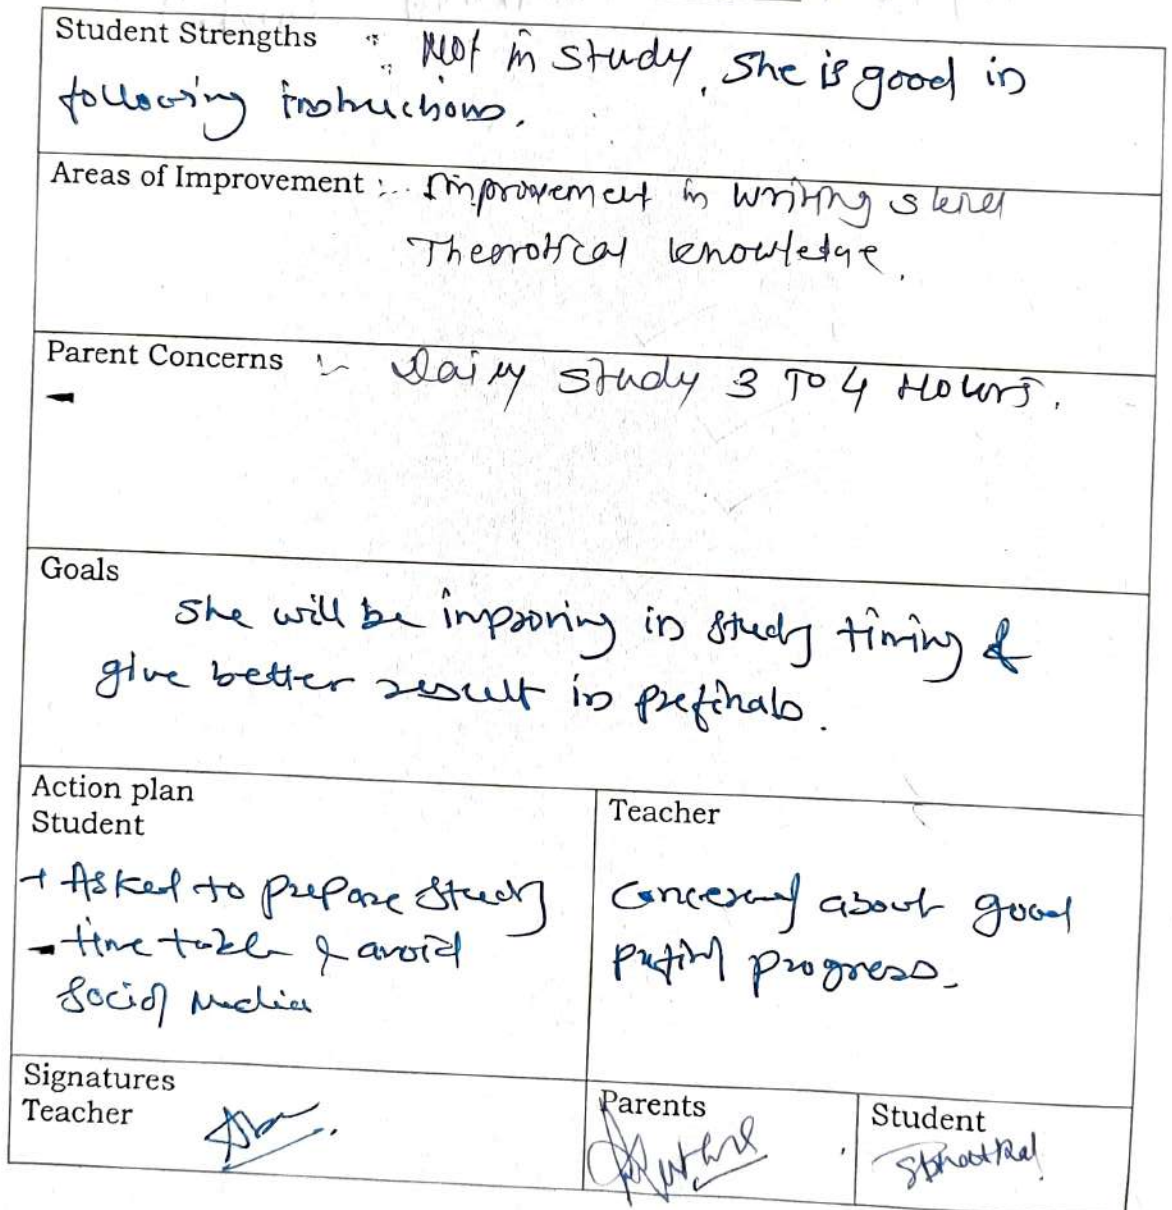 Student Strengths :- Not in study. She is good in
following instructions.
Areas of Improvement :- Improvement in writing skill
Theorotical knowledge.
Parent Concerns :- Daily study 3 To 4 Hours.
-
Goals
She will be improving in study timing &
give better result in prefinals.
Action plan
Student
Teacher
+ Asked to prepare study
- time table & avoid
Social Media
Concerned about good
prefinal progress.
Signatures
Teacher
Parents
Student